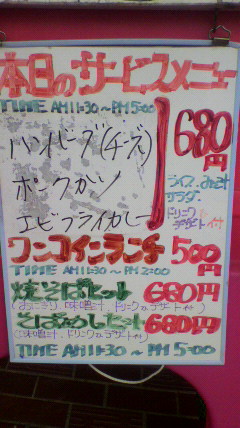 本日のサービスメニュー
TIME AM11:30～PM5:00
ハンバーグ(チーズ)
ポークカツ
エビフライカレー
680円
ライス、みそ汁
サラダ、
ドリンク
デザート付
ワンコインランチ 500円
TIME AM11:30～PM2:00
焼そばセット 680円
(おにぎり 味噌汁 ドリンク デザート付)
680円
(味噌汁、ドリンク デザート付)
TIME AM11:30～PM5:00